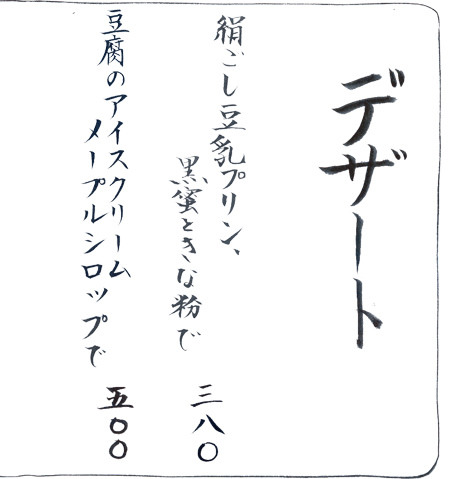 デザート
絹ごし豆乳プリン、
黒蜜ときな粉で 三八〇
豆腐のアイスクリーム
メープルシロップで 五〇〇